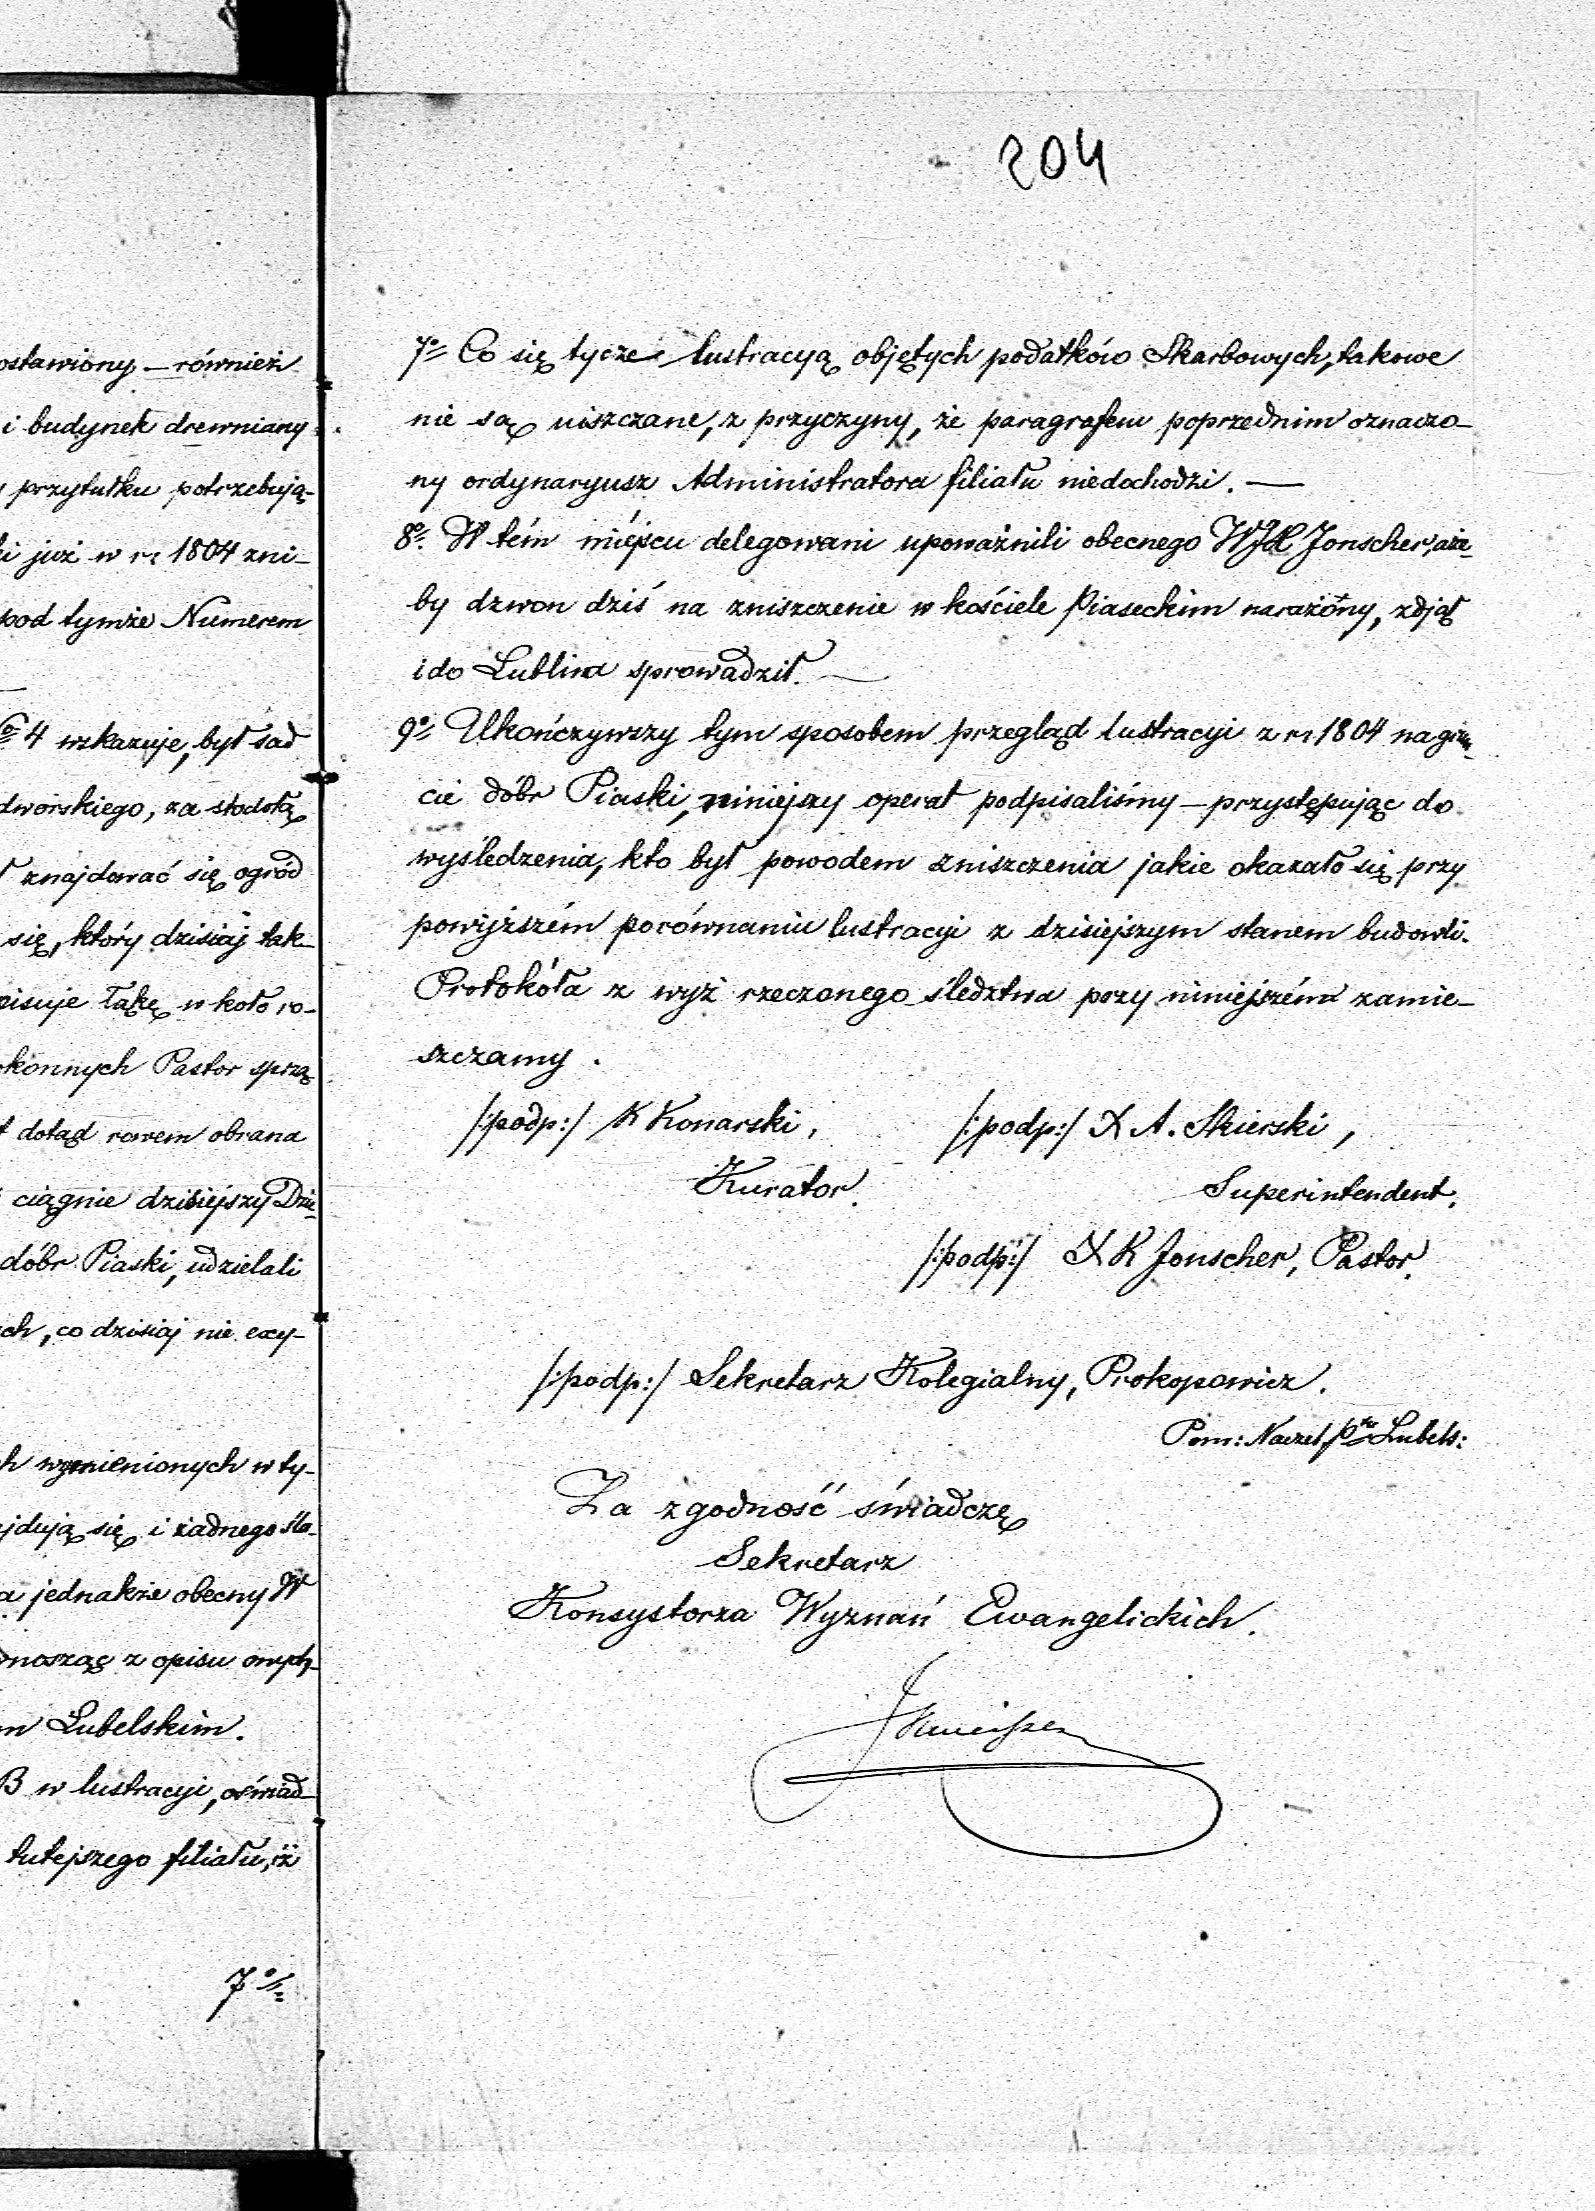 ostawiony – również
i budynek drewniany
przytułku potrzebują-
już w r. 1804 zni-
pod tymże Numerem
4 wskazuje, był sad
dworskiego, za stodołą
znajdować się ogród
się, który dzisiaj tak-
pisuje łąkę w koło ro-
okonnych Pastor sprzą
dotąd rowem obrana
ciągnie dzisiejszy Dzie-
dóbr Piaski, udzielali
ch, co dzisiaj nie exy-
h wymienionych w ty-
jdują się i żadnego śla-
a jednakże obecny W
nosząc z opisu onych-
m Lubelskim.
B w lustracyi, oświad-
tutejszego filiału, iż
7º
204
7º Co się tycze lustracyą objętych podatków Skarbowych, takowe
nie są uiszczane, z przyczyny, że paragrafem poprzednim oznaczo-
ny ordynaryusz Administratora filiału niedochodzi. —
8º. W tém miéjscu delegowani upoważnili obecnego WJX Jonscher, aże-
by dzwon dziś na zniszczenie w kościele Piaseckim narażony, zdjął
i do Lublina sprowadził. —
9º Ukończywszy tym sposobem przegląd lustracyi z r. 1804 na grun-
cie dóbr Piaski, niniejszy operat podpisaliśmy – przystępując do
wyśledzenia, kto był powodem zniszczenia jakie okazało się przy
powyższém porównaniu lustracyi z dzisiejszym stanem budowli.
Protokóła z wyż rzeczonego śledztwa przy niniejszém zamie-
szczamy.
/:podp:/ K Konarski, /:podp:/ X A. Skierski,
Kurator. Superintendent.
/:podp:/ X K Jonscher, Pastor.
/:podp:/ Sekretarz Kolegialny, Prokopowicz.
Pom: Naczel Ptu Lubels:
Za zgodność świadczę
Sekretarz
Konsystorza Wyznań Ewangelickich.